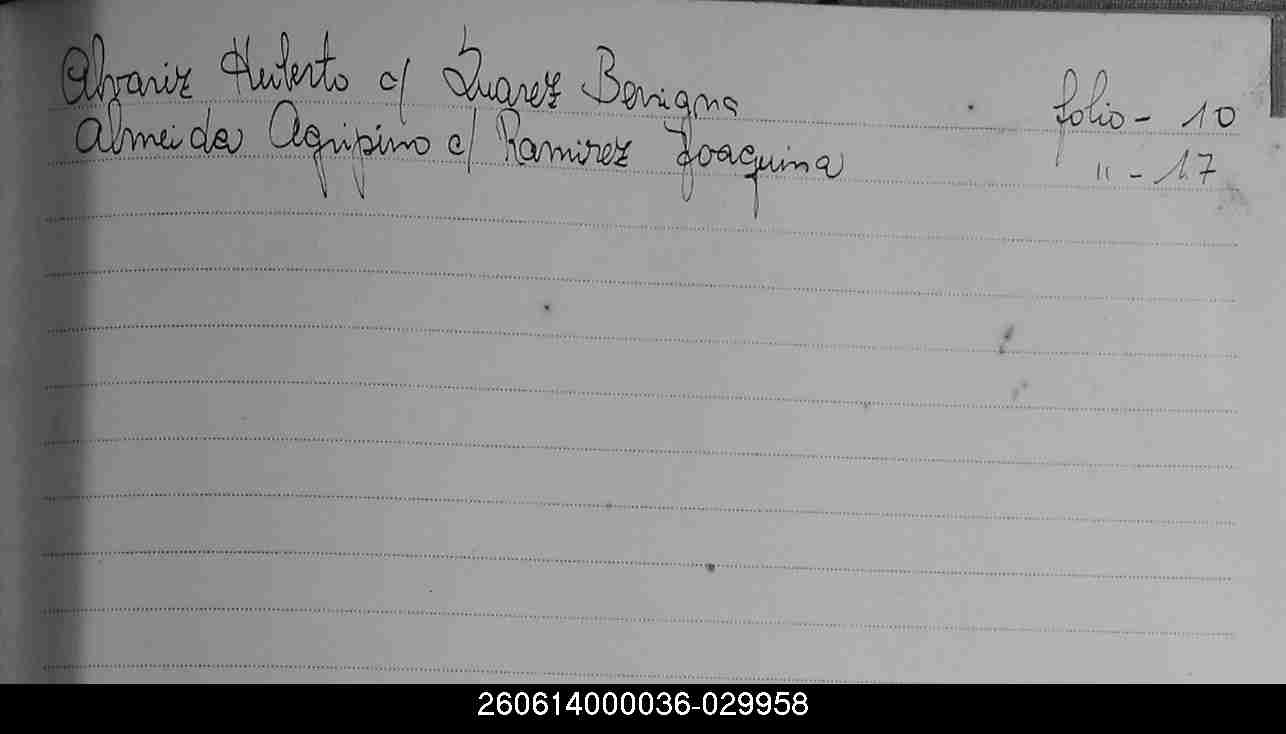 Alvariz Huberto c/ Suarez Benigna folio - 10
Almeida Agripino c/ Ramirez Joaquina " - 17
260614000036-029958